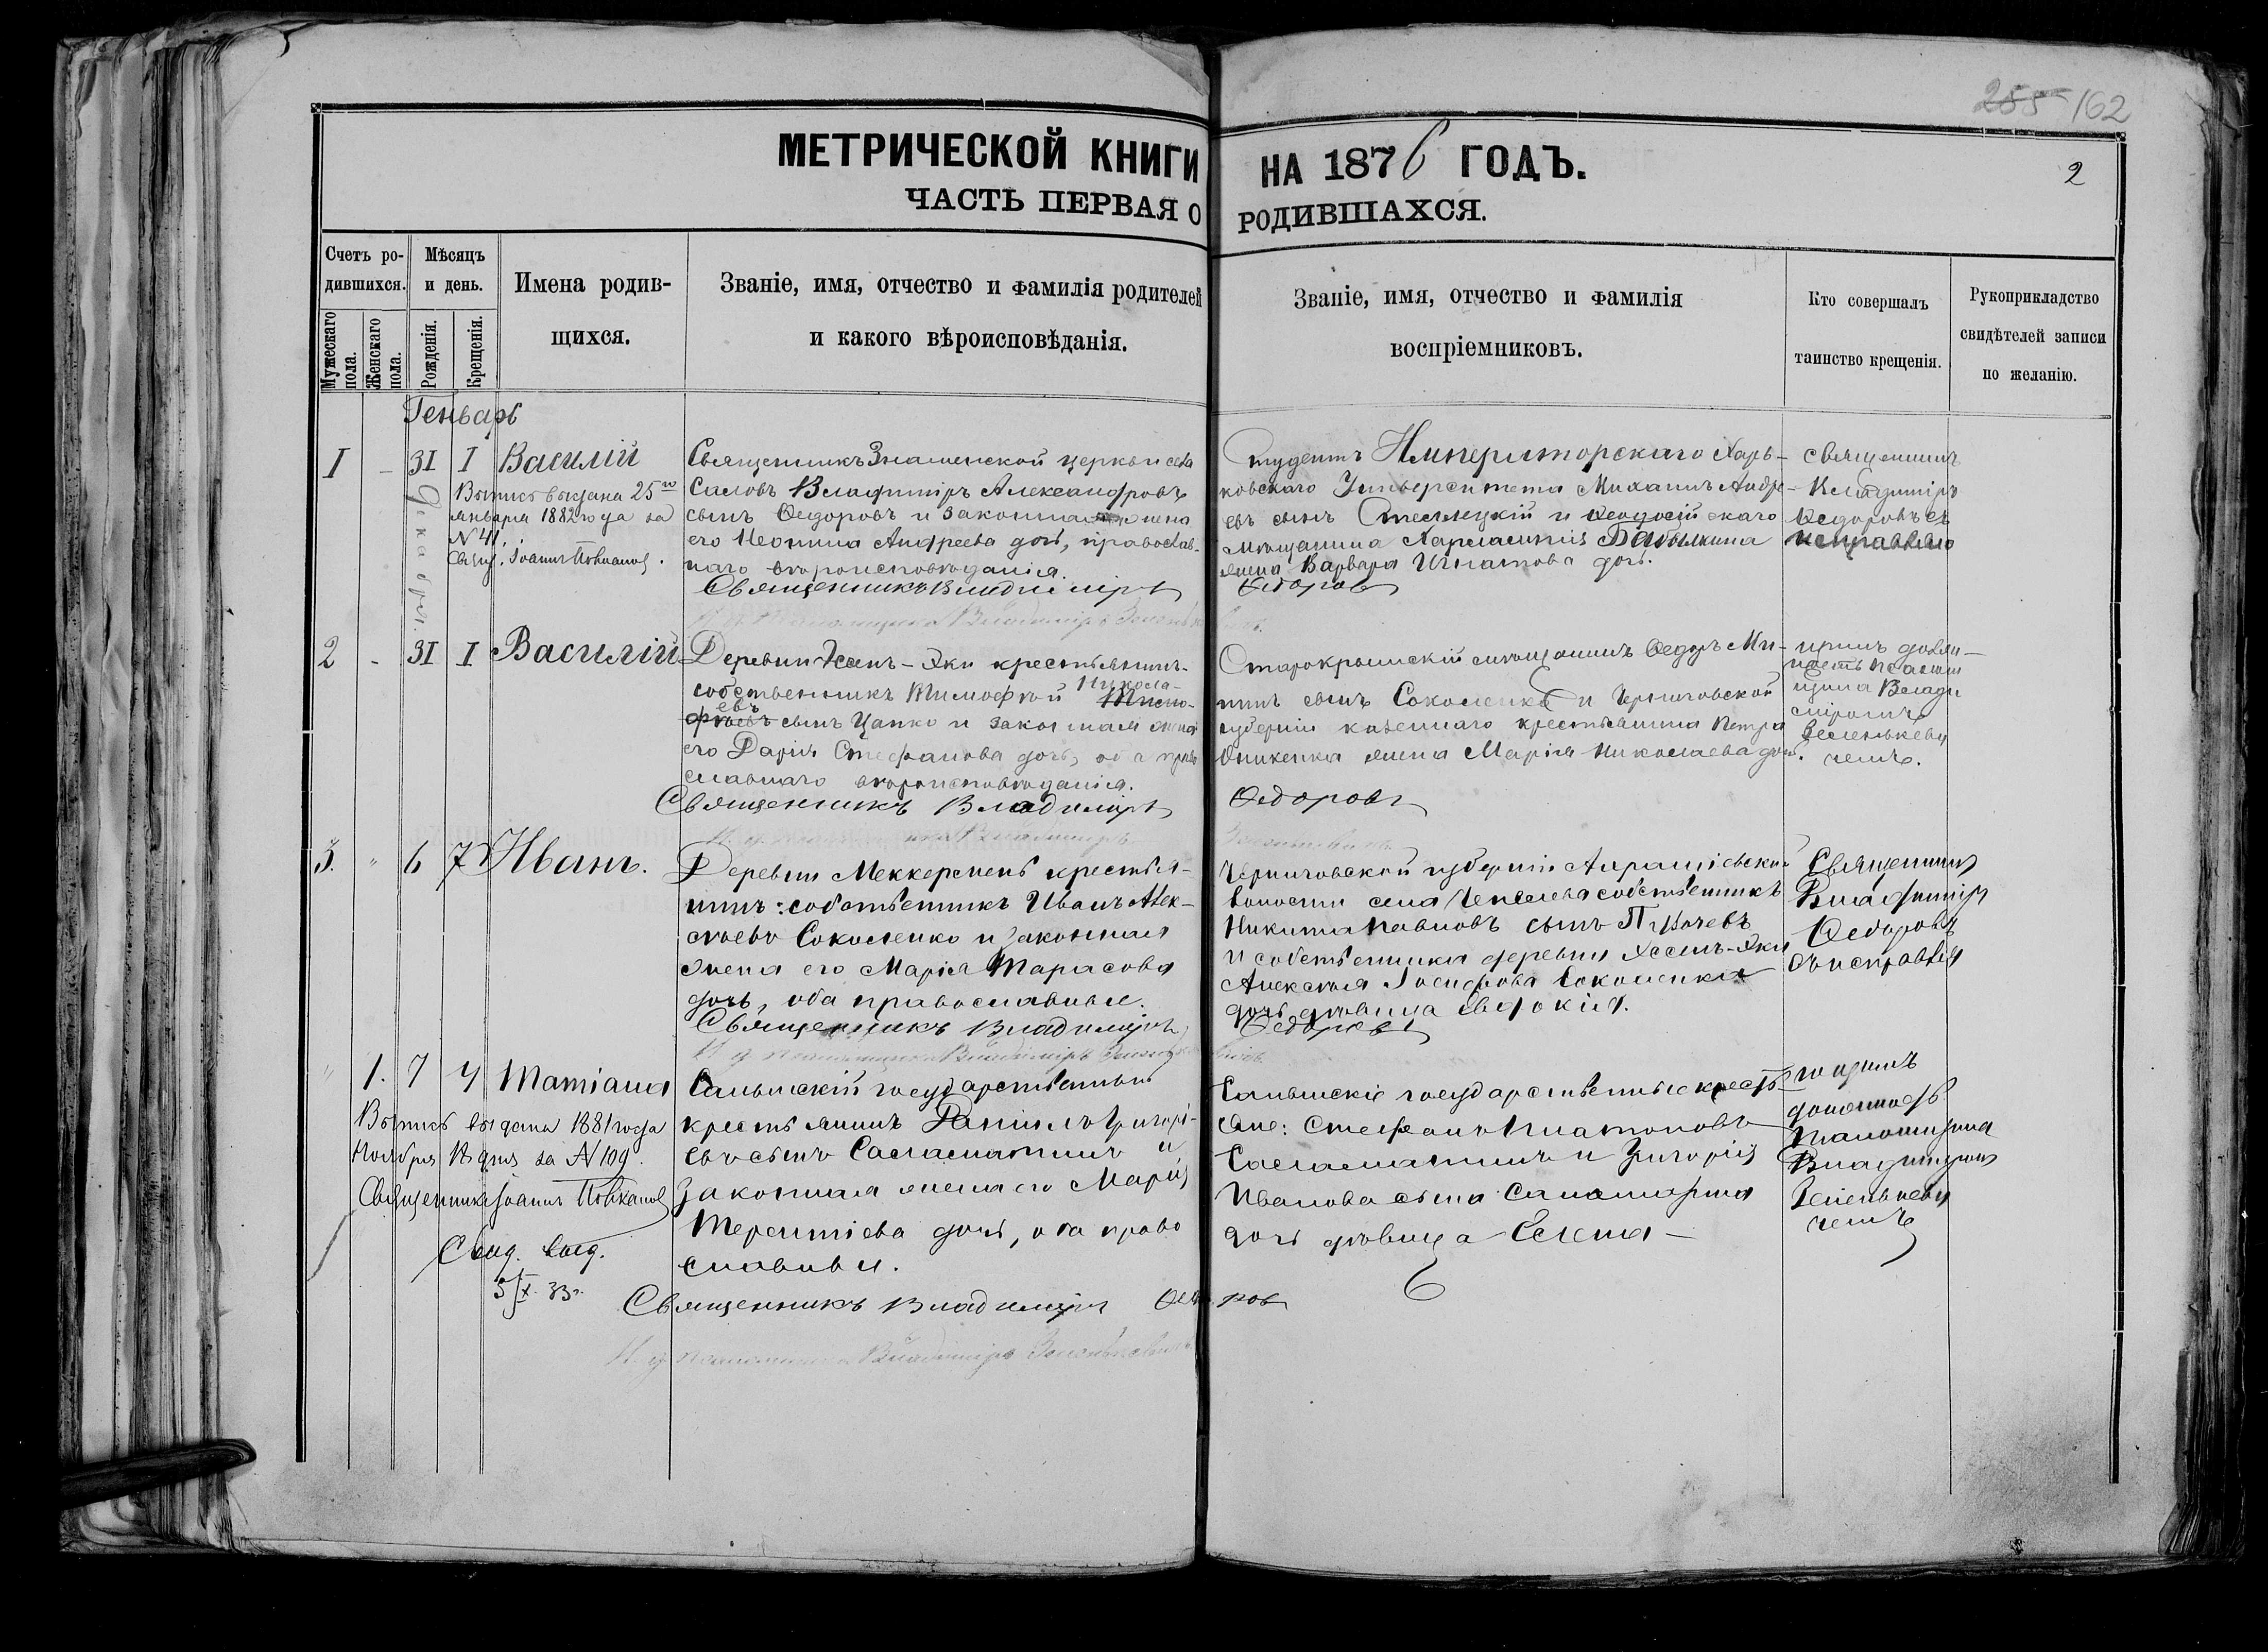 255 162
МЕТРИЧЕСКОЙ КНИГИ НА 1876 ГОДЪ.
2
ЧАСТЬ ПЕРВАЯ О РОДИВШАХСЯ.
Счетъ ро-
дившихся.
Мужескаго пола.
Женскаго пола.
Мѣсяцъ
и день.
Рожденія.
Крещенія.
Имена родив-
щихся.
Званіе, имя, отчество и фамилія родителей
и какого вѣроисповѣданія.
Званіе, имя, отчество и фамилія
воспріемниковъ.
Кто совершалъ
таинство крещенія.
Рукоприкладство
свидѣтелей записи
по желанію.
Генварь
1 - 31 1 Василій
Декабря.
Выпись выдана 25го
января 1882 года за
N 41.
Свящ. Іоаннъ
Священникъ Знаменской церкви села
Саловъ Владиміръ Александровъ
сынъ Ѳедоровъ и законная жена
его Неонила Андреева дочь, православ-
наго вѣроисповѣданія.
Священникъ Владиміръ Ѳедоровъ
Студентъ Императорскаго Харь-
ковскаго Университета Михаилъ Андре-
евъ сынъ и Ѳеодосійскаго
мѣщанина Харлампія
жена Варвара Игнатова дочь.
Священникъ
Владиміръ
Ѳедоровъ съ
исправляю
2 - 31 1 Василій
Деревни Хасъ-Эки крестьянинъ-
собственникъ Тимофей Никола-
евъ Тимо-
фѣевъ сынъ Цапко и законная жена
его Дарія Стефанова дочь, оба право
славнаго вѣроисповѣданія.
Священникъ Владиміръ Ѳедоровъ
Старокрымскій мѣщанинъ Ѳедоръ Ми-
нинъ сынъ Соколенко и Черниговской
губерніи казеннаго крестьянина Петра
Оникенка жена Марія Николаева дочь.
щимъ долж-
ность псаломщ
щика Влади
міромъ
Зеленькеви
чемъ.
3. " 6 7 Иванъ.
Деревни Меккерменъ крестья-
нинъ: собственникъ Иванъ Алек-
сѣевъ Соколенко и законная
жена его Марія Тарасова
дочь, оба православные.
Священникъ Владиміръ Ѳедоровъ
Черниговской губерніи
волости села собственникъ
Никита Павловъ сынъ
и собственника деревни Хасъ-Эки
Алексѣя Іосифова Соколенка
дочь дѣвица Евдокія.
Священникъ
Владиміръ
Ѳедоровъ
съ исправляю
" 1. 7 7 Татіана
Выпись выдана 1881 года
Ноября дня за N 109.
Священникъ Іоаннъ
Свид. выд.
5/X 33г.
Салынскій государственный
крестьянинъ Даніилъ Григорі-
евъ сынъ Саламатинъ и
законная жена его Марія
Терентіева дочь, оба право
славные.
Священникъ Владиміръ Ѳедоровъ
Салынскіе государственные кресть-
яне: Стефанъ Платоновъ
Саламатинъ и Григорія
Иванова сына
дочь дѣвица Елена
щимъ
должность
Псаломщика
Владиміромъ
Зеленькеви
чемъ